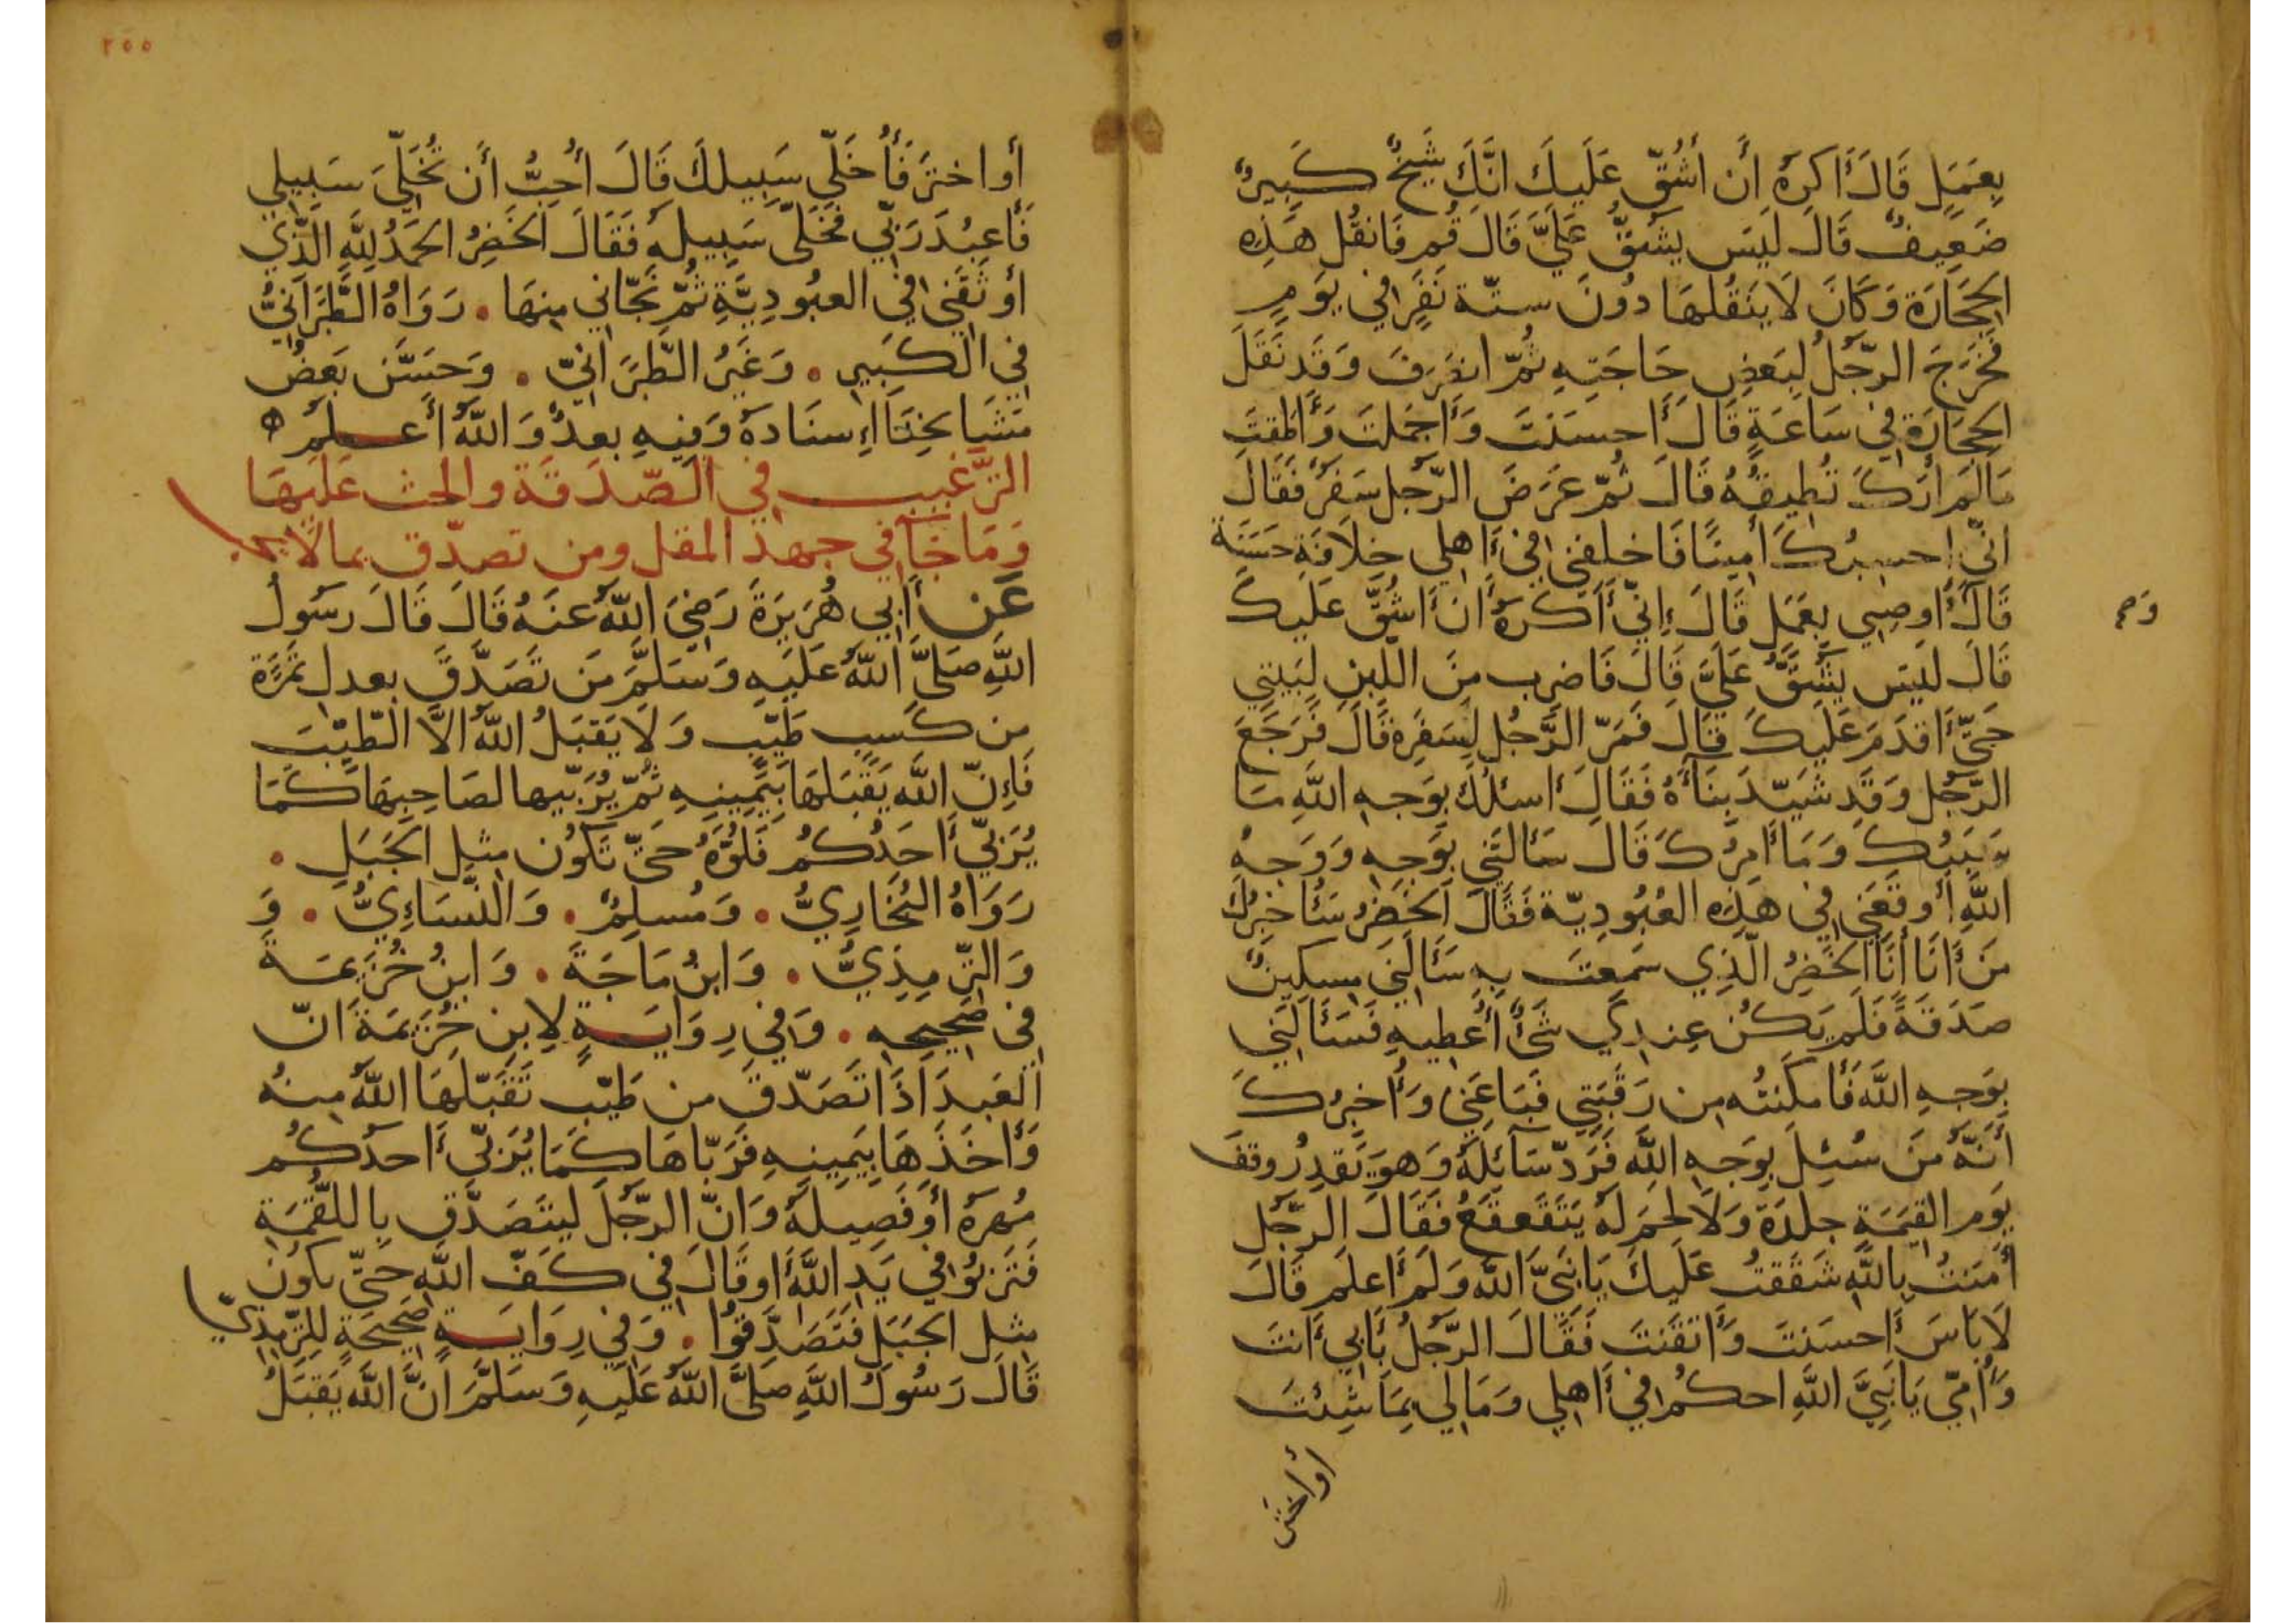 بِعَمَلٍ قَالَ أَكرَهُ أَن أَشُقّ عَلَيكَ انَّكَ شَيخٌ كَبِيرٌ
ضَعِيفٌ قَالَ لَيسَ يَشُقُّ عَلَيَّ قَالَ قُم فَانقُل هَذِهِ
الحِجَارَة وَكَانَ لَا يَنقُلهَا دُونَ ستّة نَفَرٍ في يَومٍ
فَخَرَجَ الرّجُلُ لِبَعضِ حَاجَتِهِ ثُمّ انصَرَفَ وَقَد نَقَلَ
الحِجَارَة فِي سَاعَةٍ قَالَ أَحسَنتَ وَأَجمَلتَ وَأَطَقتَ
مَالَم أَرَكَ تُطِيقُهُ قَالَ ثُمّ عَرَضَ الرّجل سَفَرٌ فَقَالَ
انّي احسِبُكَ أَمِينًا فَاخلفنِي فِي أَهلِي خِلَافَةِ حَسَنَة
قَالَ أَوصِيِي بِعَمَلٍ قَالَ إِنّي أَكرَهُ أَن أَشُقَّ عَلَيكَ
قَالَ لَيسَ يَشُقُّ عَلَيَّ قَالَ فَاضرِب مِنَ اللّبِنِ لِبَيتِي
حَتَّى أَقدَمَ عَلَيكَ قَالَ فَمَرّ الرَّجُل لِسَفَرِهِ قَالَ فَرَجَعَ
الرَّجُل وَقَد شَيّدَ بِنَآءَهُ فَقَالَ أَسئلُكَ بِوَجهِ اللَّهِ مَا
سَبَبُكَ وَمَا أَمرُكَ قَالَ سَأَلتَنِي بِوَجهِ وَوَجهُ
اللَّهِ أَوقَعَنِي فِي هَذِهِ العُبُودِيّة فَقَالَ الخَضِرُ سَأُخبِرُكَ
مَن أَنَا أَنَا الخَضِرُ الّذِي سَمِعتَ بِهِ سَأَلَنِي مِسكِينٌ
صَدَقَةً فَلَم يَكُن عِندِي شَيءٌ أُعطِيهِ فَسَأَلَنِي
بِوَجهِ اللَّه فَأَمكَنتُه مِن رَقَبَتِي فَبَاعَنِي وَأُخبِرُكَ
أَنّهُ مَن سُئِلَ بِوَجهِ اللَّهِ فَرَدّ سَآئِلَهُ وَهوَ يَقدِرُ وقفَ
يَوم القِيَمَةِ جلدَة وَلَا لحمَ لَهُ يَتَقَعقَعُ فَقَالَ الرّجُل
أَمَنتُ بِاللَّهِ شَقَقتُ عَلَيكَ يَا نَبِيَّ اللَّه وَلَم أَعلَم قَالَ
لَا بَاسَ أَحسَنتَ وَأَتقَنتَ فَقَالَ الرّجُلُ بِأَبِي أَنتَ
وَأُمِّي يَا نَبِيَّ اللَّهِ احكُم فِي أَهلِي وَمَالِي بِمَا شِئتَ
او اختر
٢٥٥
أَو اختَر فَأُخَلّي سَبِيلكَ قَالَ أُحِبُّ أَن تُخَلّيَ سَبِيلِي
فَأَعبُدَ رَبّي فَخَلّى سَبِيلَهِ فَقَالَ الخَضِرُ الحَمدُ لِلَّهِ الّذِي
أَوثَقَنِي فِي العبُودِيَّةِ ثُمّ نَجّانِي مِنهَا . رَوَاهُ الطَّبَرَانِيُّ
فِي الكَبِيرِ . وَغَيرُ الطّبَرَانيّ . وَحَسَّن بَعضُ
مَشَايخِنَا إِسنَادهُ وَفِيهِ بعدٌ وَاللَّهُ أَعلَمُ
الترَّغيب في الصّدَقَة والحث عَلَيهَا
وَمَا جَآ في جهد المقل ومن تصدّق بمالا يجب
عَن أَبِي هُرَيرَةَ رَضِيَ اللَّهُ عَنهُ قَالَ قَالَ رَسُولُ
اللَّهِ صَلَّى اللَّهُ عَلَيهِ وَسَلَّمَ مَن تَصَدَّقَ بِعدلِ تَمرَة
مِن كَسبٍ طَيّبٍ وَلَا يَقبَلُ اللَّهُ الّا الطّيّبَ
فَإِنّ اللَّه يَقبَلهَا بِيَمِينِهِ ثُمّ يُرَبّيها لصَاحِبِهَا كَمَا
يُرَبّي أَحَدُكُم فَلُوَّهُ حَتّى تَكُون مِثل الجَبَلِ .
رَوَاهُ البُخَارِيُّ . وَمُسلِمٌ . وَالنّسَاءِيُّ . وَ
وَالتّرمِذِيُّ . وَابنُ مَاجَة . وَابنُ خُزَيمَة
فِي صَحِيحِهِ . وَفِي رِوَايَةٍ لِابنِ خُزَيمَةَ انّ
العَبدَ اذَا تَصَدّقَ من طَيّب تَقَبّلَهَا اللَّهُ مِنهُ
وَأَخَذَهَا بِيَمِينِهِ فَرَبّاهَا كَمَا يُرَبّي أَحَدُكُم
مُهرَهُ أَو فَصِيلهُ وَانّ الرّجُلَ لَيَتَصَدّقُ بِاللّقمَةِ
فَتَربُوا فِي يَدِ اللَّهِ أَو قَالَ فِي كَفّ اللَّهِ حَتّى تَكُون
مِثل الجَبَلِ فَتَصَدَّقُوا . وَفِي رِوَايَةٍ صَحِيحَةٍ لِلتّرمِذِيّ
قَالَ رَسُولُ اللَّهِ صَلَّى اللَّهُ عَلَيهِ وَسَلَّمَ انَّ اللَّهَ يَقبَلُ